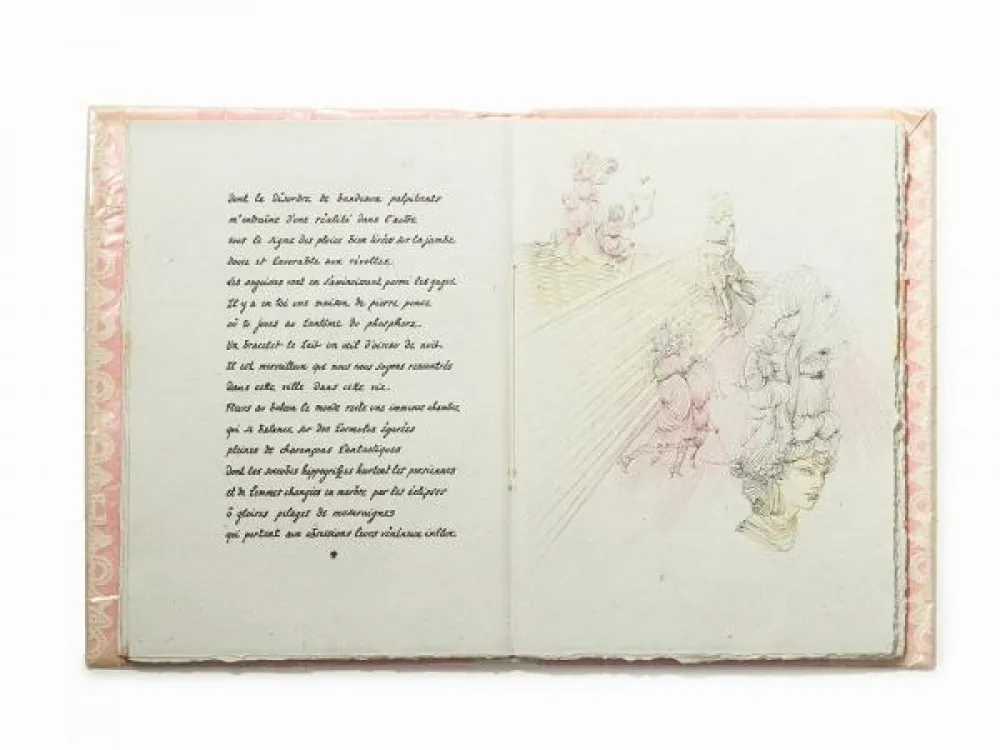 dont le désordre de bandeaux palpitants
m'entraîne d'une réalité dans l'autre
sous le signe des pluies bien tirées sur la jambe
douce et favorable aux révoltes.
Les angoisses vont en s'amincissant parmi les gages
Il y a en toi une maison de pierre ponce
où tu joues au fantôme du phosphore.
Un bracelet te fait un œil d'oiseau de nuit.
Il est merveilleux que nous nous soyons rencontrés
dans cette ville dans cette vie.
Fleurs au balcon le monde reste une immense chambre
qui se balance sur des formules égarées
pleines de charançons fantastiques
dont les sombres hippogriffes heurtent les persiennes
et de femmes changées en marbre par les éclipses
ô gloires pelages de musaraignes
qui portent aux obsessions leurs vénéneux